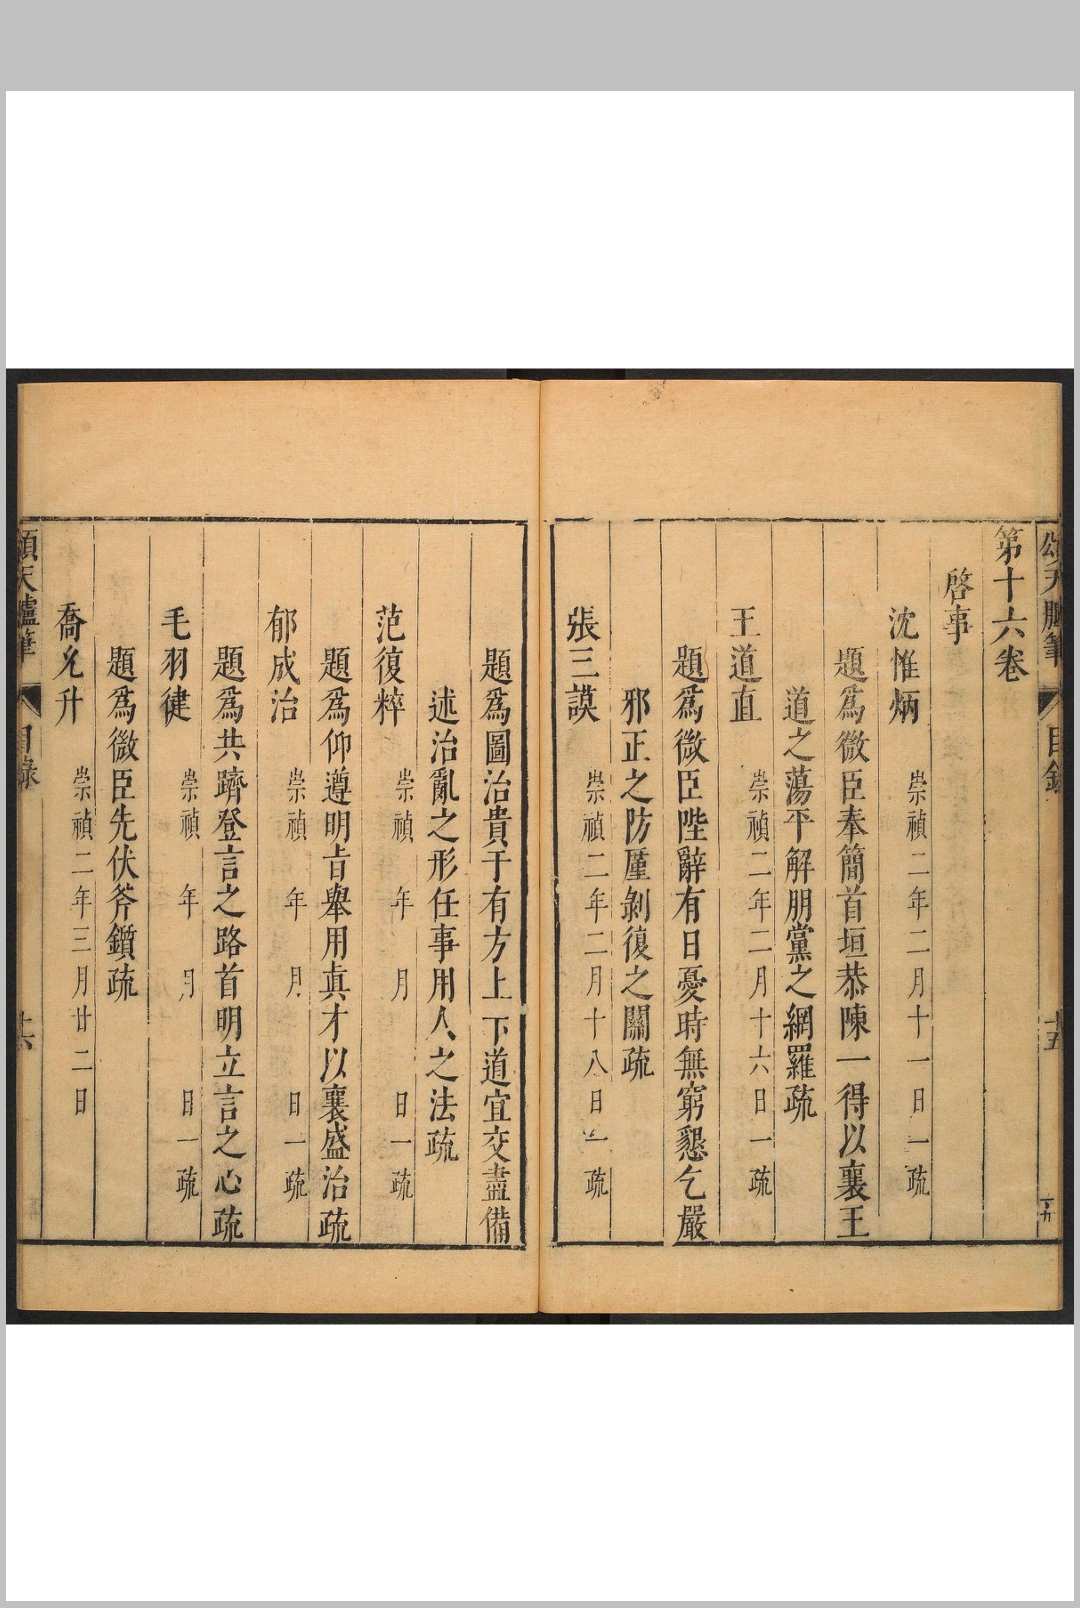 頌天臚筆 目錄 十五
第十六卷
啓事
沈惟炳 崇禎二年二月十一日一疏
題爲微臣奉簡首垣恭陳一得以襄王
道之蕩平解朋黨之網羅疏
王道直 崇禎二年二月十六日一疏
題爲微臣陛辭有日憂時無窮懇乞嚴
邪正之防厪剝復之關疏
張三謨 崇禎二年二月十八日一疏
題爲圖治貴于有方上下道宜交盡備
述治亂之形任事用人之法疏
范復粹 崇禎 年 月 日一疏
題爲仰遵明旨舉用真才以襄盛治疏
郁成治 崇禎 年 月 日一疏
題爲共躋登言之路首明立言之心疏
毛羽健 崇禎 年 月 日一疏
題爲微臣先伏斧鑕疏
喬允升 崇禎二年三月廿二日
頌天臚筆 目錄 十六